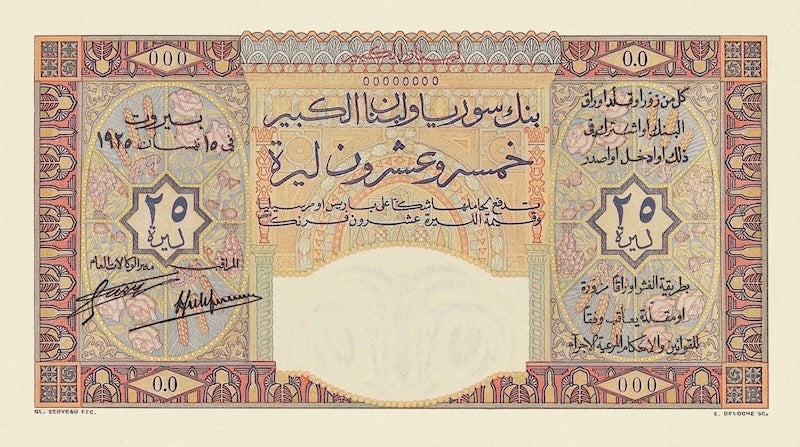 000
0.0
00000000
بنك سوريا ولبنان الكبير
خمسة وعشرون ليرة
تدفع لحاملها شكا على باريس او مرسيليا
وقيمة الليرة عشرون فرنكا
بيروت
في ١٥ نيسان ١٩٢٥
٢٥
ليرة
المراقب مدير الوكالات العام
كل من زور او قلد اوراق
البنك او اشترك في
ذلك او ادخل او اصدر
٢٥
ليرة
بطريقة الغش اوراقا مزورة
او مقلدة يعاقب وفقا
للقوانين والاحكام المرعية الاجراء
0.0
000
CL. SERVEAU FEC.
E. DELOCHE SC.